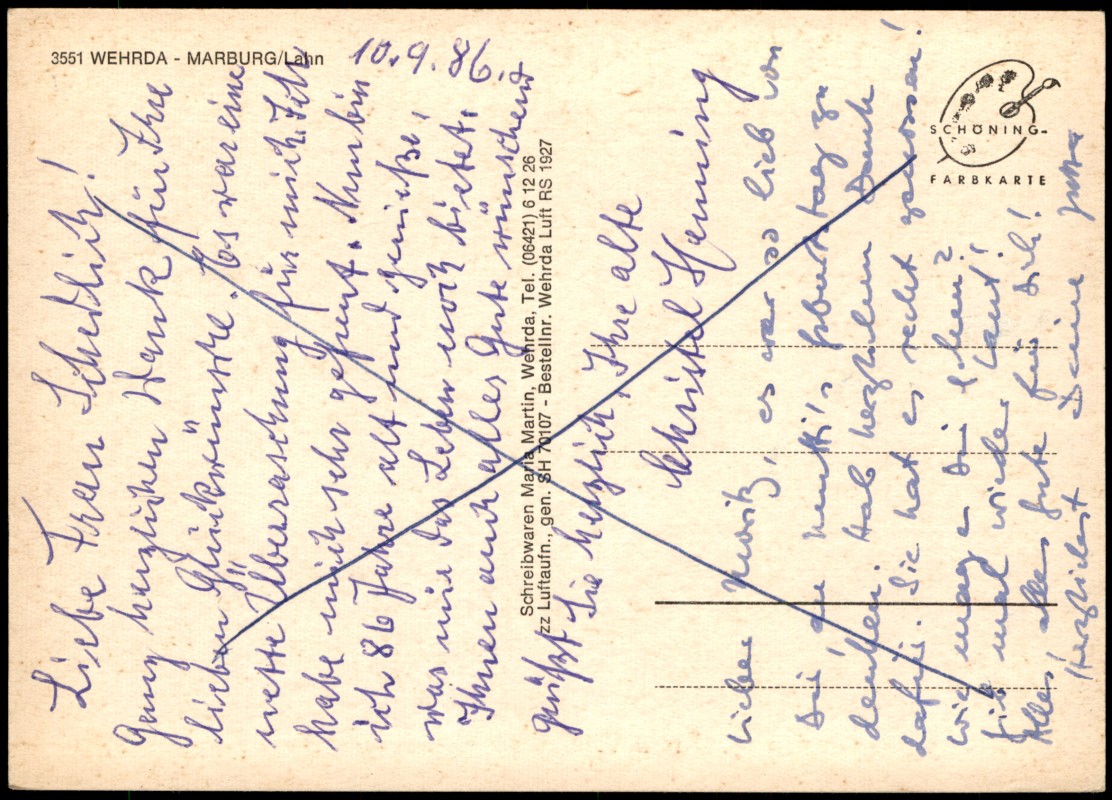 3551 WEHRDA - MARBURG/Lahn
10.9.86.
Liebe Frau Schedlich!
Ganz herzlichen Dank für Ihre
lieben Glückwünsche. Es war eine
nette Überraschung für mich. Ich
habe mich sehr gefreut. Nun bin
ich 86 Jahre alt und genieße,
was mir das Leben noch bietet.
Ihnen auch alles Gute wünschend
grüßt Sie herzlich, Ihre alte
Christel Henning
Schreibwaren Maria Martin, Wehrda, Tel. (06421) 6 12 26
zz Luftaufn., gen. SH 70107 - Bestellnr. Wehrda Luft RS 1927
SCHÖNING-
FARBKARTE
Liebe es war so lieb von
Dir an Mutti's Geburtstag zu
denken. Hab herzlichen Dank
dafür. Sie hat es recht genossen!
Wie mag es Dir gehen?
Gib mal wieder Laut!
Alles alles Gute für Dich!
Herzlichst Deine Jutta